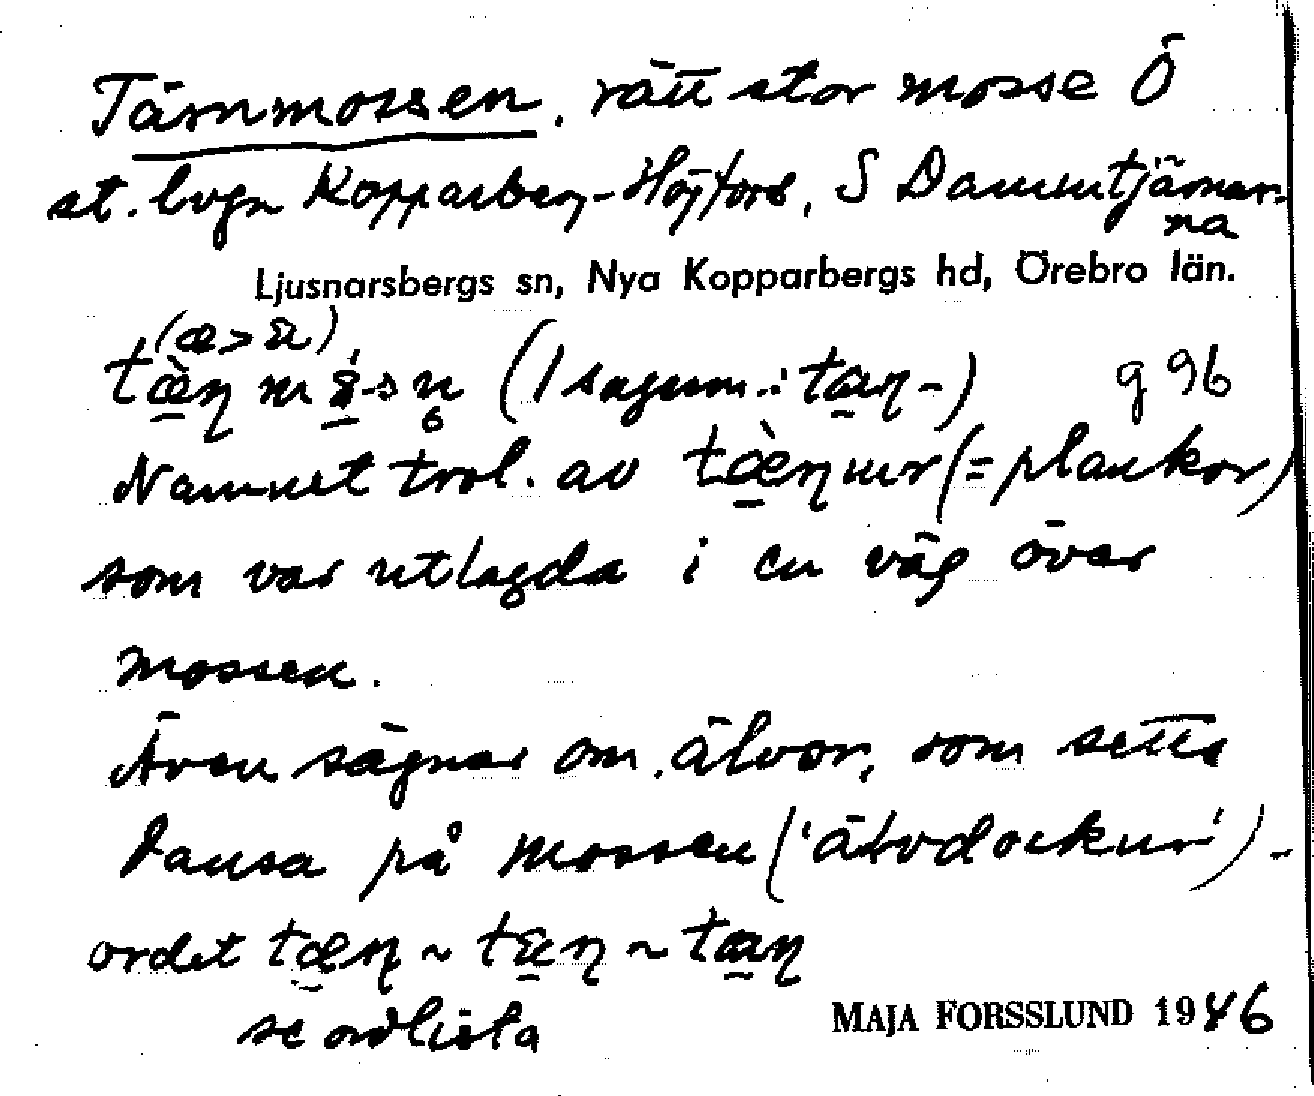 Tärnmossen, rätt stor mosse Ö
st. lvgn Kopparberg-Högfors, S Dammtjärnar-
na
Ljusnarsbergs sn, Nya Kopparbergs hd, Örebro län.
(1 sagesm.: taɳ-) g 96
Namnet trol. av tæ̀ɳɯr (= plankor)
som var utlagda i en väg över
mossen.
Även sägner om älvor, som setts
dansa på mossen ('älvdockur') -
ordet tæɳ ~ ~ taɳ
se ordlista
MAJA FORSSLUND 1946